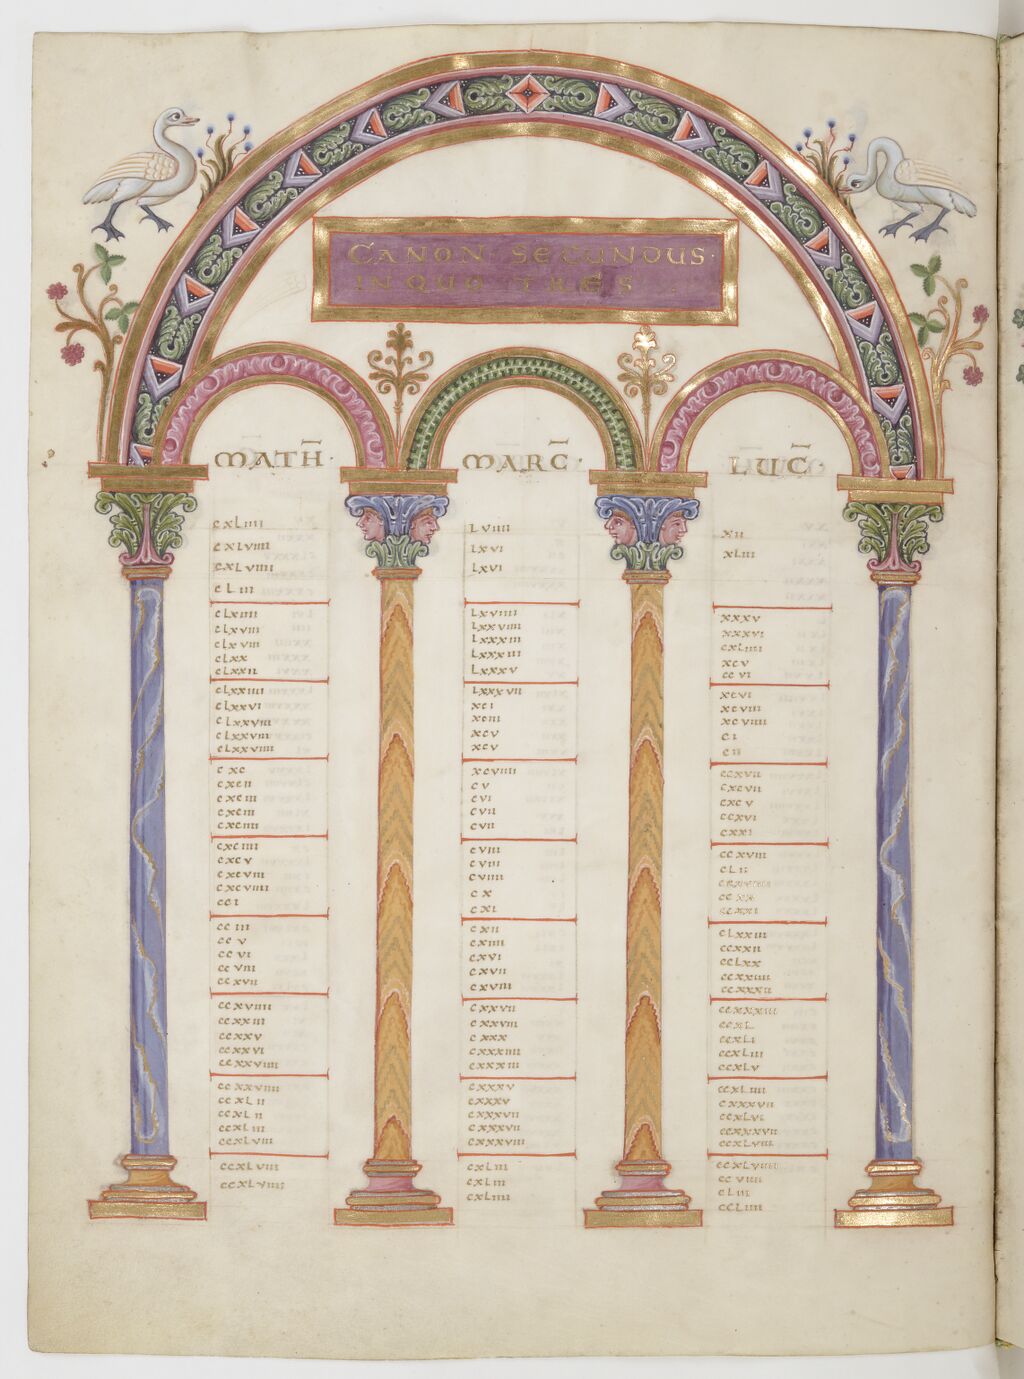 CANON SECUNDUS
IN QUO TRES
MATH
MARC
LUC
cxliiii
cxlviiii
cxlviiii
cliii
clxiiii
clxviii
clxviii
clxx
clxxii
clxxiiii
clxxvi
clxxviii
clxxviiii
clxxviiii
cxc
cxcii
cxciii
cxciii
cxciiii
cxciiii
cxcv
cxcviii
cxcviiii
cci
cciii
ccv
ccvi
ccviii
ccxvii
ccxviiii
ccxxiii
ccxxv
ccxxvi
ccxxviiii
ccxxviiii
ccxlii
ccxlii
ccxliii
ccxlviii
ccxlviii
ccxlviiii
lviiii
lxvi
lxvi
lxviiii
lxxviiii
lxxxiii
lxxxiii
lxxxv
lxxxvii
xci
xciii
xcv
xcv
xcviiii
cv
cvi
cvii
cvii
cviii
cviii
cviiii
cx
cxi
cxii
cxiiii
cxvi
cxvii
cxviii
cxxvii
cxxviii
cxxx
cxxxiiii
cxxxiiii
cxxxv
cxxxv
cxxxvii
cxxxvii
cxxxviii
cxliii
cxliii
cxliiii
xii
xliii
xxxv
xxxvi
cxliiii
xcv
ccvi
xcvi
xcviii
xcviiii
ci
cii
ccxvii
cxcvii
cxcv
ccxvi
ccxxi
ccxviii
clii
ccxxi
clxxiii
ccxxii
cclxx
ccxxiiii
ccxxxii
ccxxxiii
ccxl
ccxli
ccxliii
ccxlv
ccxliiii
cxxxvii
ccxlvi
ccxxxvii
ccxlviii
ccxlviiii
ccviiii
cliii
ccliiii